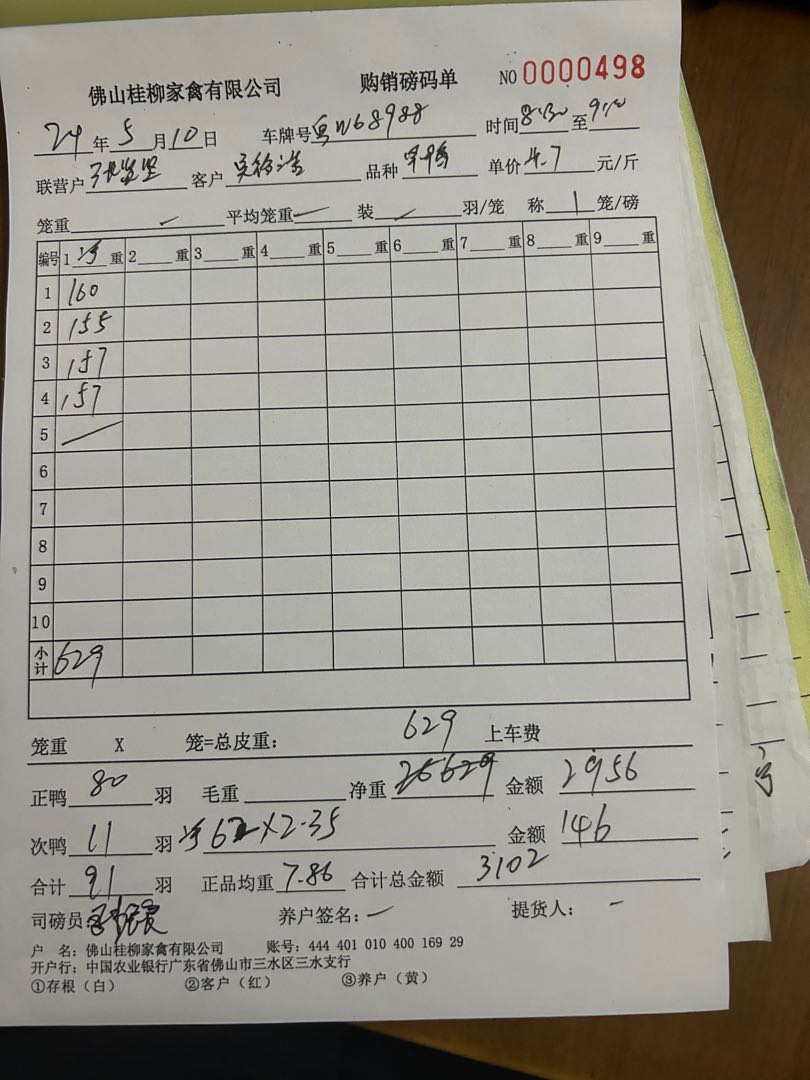 佛山桂柳家禽有限公司 购销磅码单 NO 0000498
24 年 5 月 10 日 车牌号 粤W68988 时间 8:30 至 9:10
联营户 客户 品种 单价 4.7 元/斤
笼重 平均笼重 装 羽/笼 称 1 笼/磅
编号 1 净 重 2 重 3 重 4 重 5 重 6 重 7 重 8 重 9 重
1 160
2 155
3 157
4 157
5
6
7
8
9
10
小计 629
笼重 X 笼=总皮重: 629 上车费
正鸭 80 羽 毛重 净重 629 金额 2956
次鸭 11 羽 净 62 X 2.35 金额 146
合计 91 羽 正品均重 7.86 合计总金额 3102
司磅员: 养户签名: 提货人:
户 名: 佛山桂柳家禽有限公司 账号: 444 401 010 400 169 29
开户行: 中国农业银行广东省佛山市三水区三水支行
①存根(白) ②客户(红) ③养户(黄)